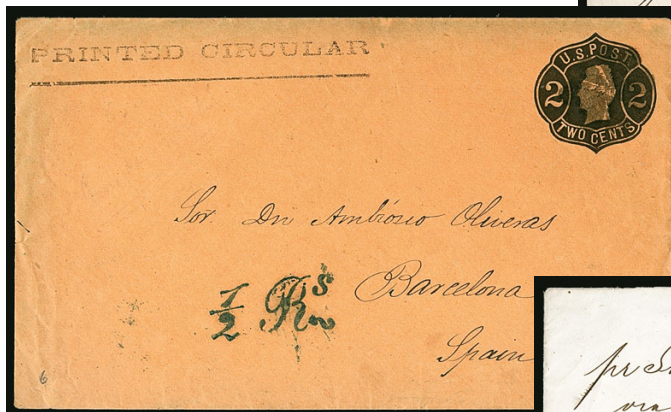 PRINTED CIRCULAR
U.S. POST.
2 2
TWO CENTS
Sor. Dn Ambrosio Oliveras
Barcelona
Spain
1/2 Rs
6
via